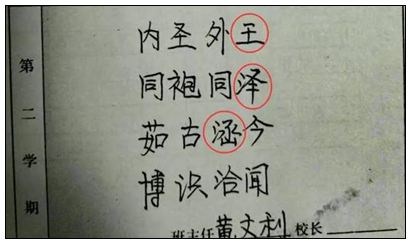 第二学期
内圣外王
同袍同泽
茹古涵今
博识洽闻
班主任黄文利校长